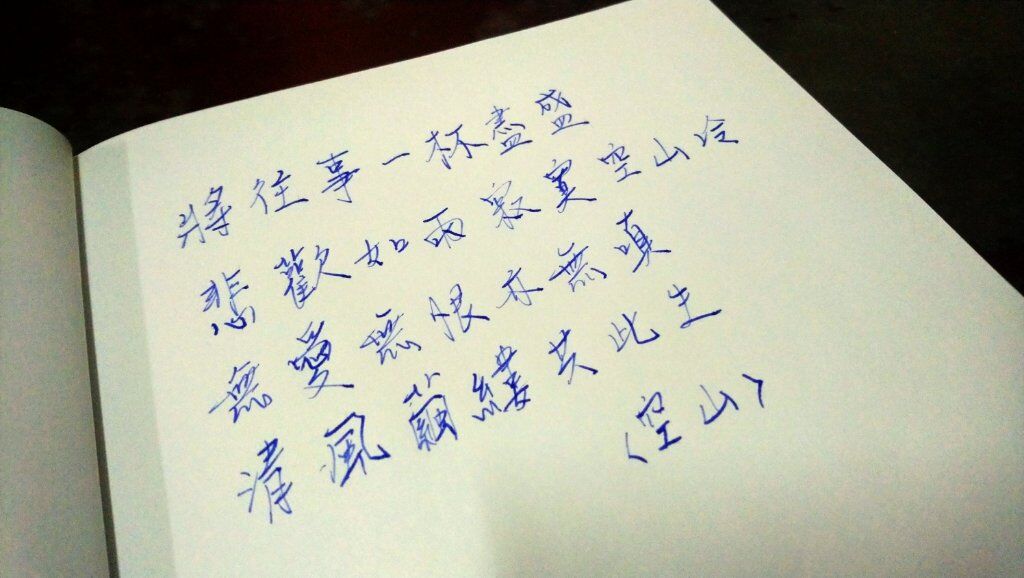 將往事一杯盡盛
悲歡如雨寂寞空山冷
無愛無恨亦無嗔
清風繭縷共此生
〈空山〉